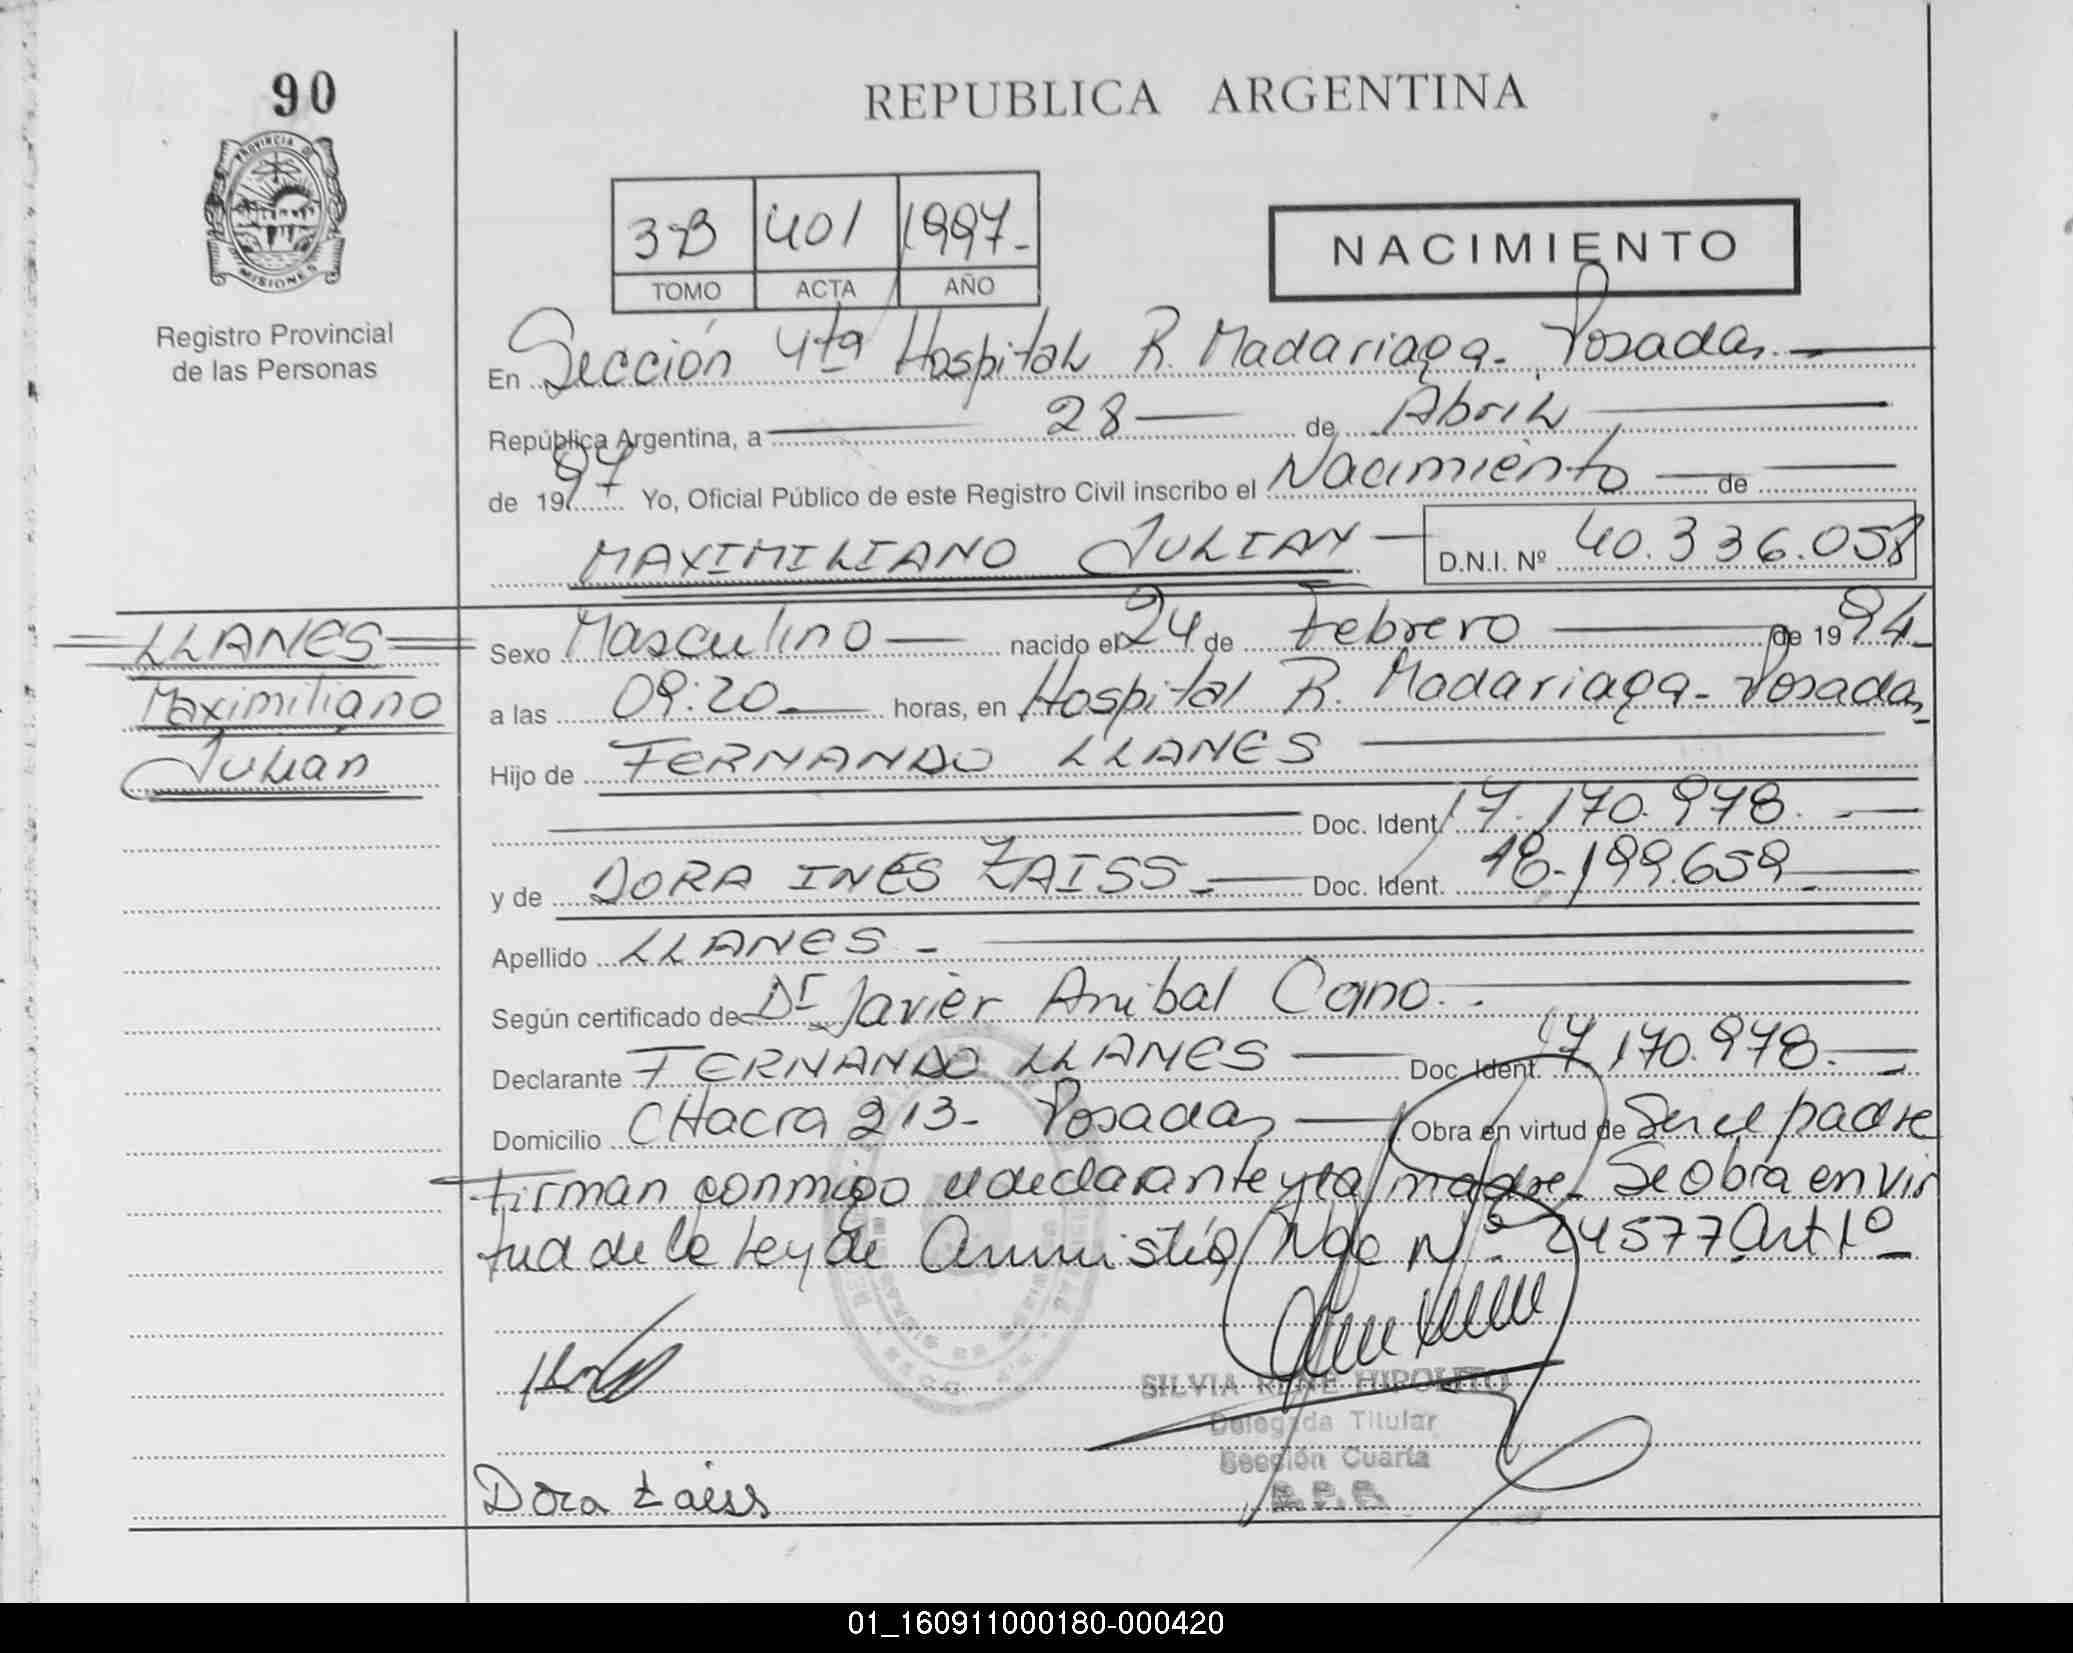 90
REPUBLICA ARGENTINA
PROVINCIA DE
MISIONES
Registro Provincial
de las Personas
3-B 401 1997.-
TOMO ACTA AÑO
NACIMIENTO
En Sección 4ta Hospital R. Madariaga - Posadas. —
República Argentina, a — 28 — de Abril —
de 1997 Yo, Oficial Público de este Registro Civil inscribo el Nacimiento — de —
MAXIMILIANO JULIAN — D.N.I. Nº 40.336.058
LLANES
Maximiliano
Julián
Sexo Masculino — nacido el 24 de Febrero — de 1994.-
a las 09:20 — horas, en Hospital R. Madariaga - Posadas
Hijo de FERNANDO LLANES —
— Doc. Ident. 17.170.978. —
y de DORA INES ZAISS. — Doc. Ident. 18.199.659 —
Apellido LLANES - —
Según certificado de Dr Javier Anibal Cano. —
Declarante FERNANDO LLANES — Doc. Ident. 17.170.978. —
Domicilio CHacra 213 - Posadas — Obra en virtud de Ser el padre
Firman conmigo el declarante y la madre. Se obra en vir
tud de la Ley de Amnistía Nac Nº 24577 Art 1º
SILVIA RENE HIPOLITO
Delegada Titular
Sección Cuarta
Dora Zaiss
01_160911000180-000420